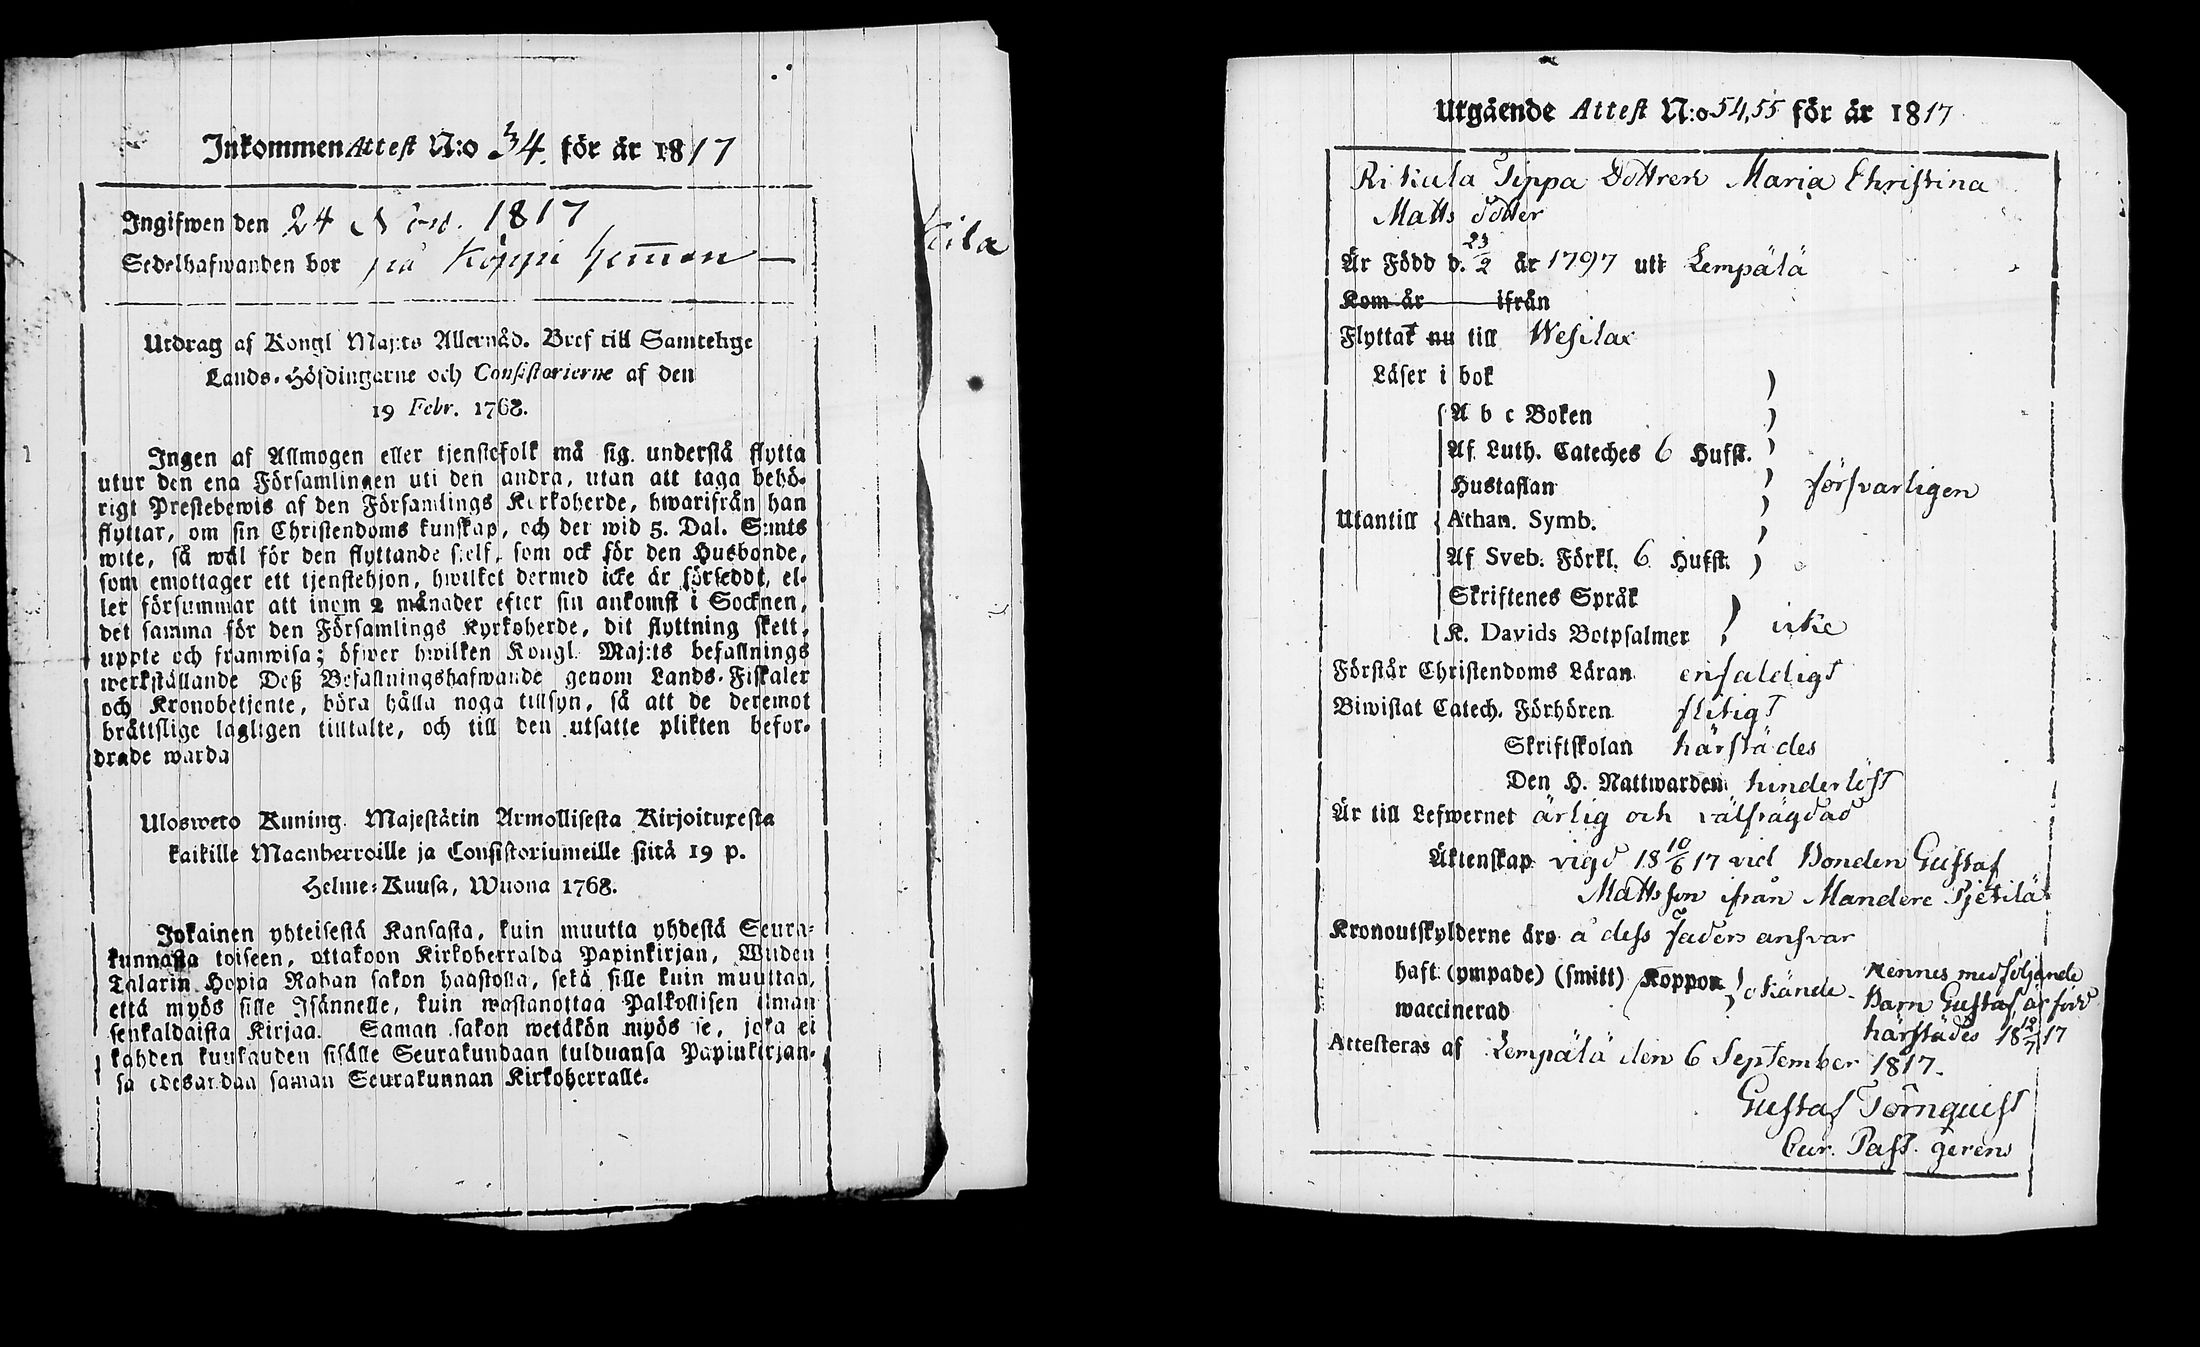 Inkommen Attest N:o 34. för år 1817
Ingifwen den 24 Nov. 1817
Sedelhafwanden bor på Köppi hemman
Utdrag af Kongl Maj:ts Allernåd. Bref till Samtelige
Lands-Höfdingarne och Consistorierne af den
19 Febr. 1768.
Ingen af Allmogen eller tjenstefolk må sig understå flytta
utur den ena Församlingen uti den andra, utan att taga behö-
rigt Prestebewis af den Församlings Kyrkoherde, hwarifrån han
flyttar, om sin Christendoms kunskap, och det wid 5. Dal. S:mts
wite, så wäl för den flyttande sjelf, som ock för den Husbonde,
som emottager ett tjenstehjon, hwilket dermed icke är försedt, el-
ler försummar att inom 2 månader efter sin ankomst i Socknen,
det samma för den Församlings Kyrkoherde, dit flyttning skett,
uppte och framwisa; öfwer hwilken Kongl. Maj:ts befallnings
werkställande Deß Befallningshafwande genom Lands-Fiskaler
och Kronobetjente, böra hålla noga tillsyn, så att de deremot
brättslige lagligen tilltalte, och till den utsatte plikten befor-
drade warda
Ulosweto Kuning. Majestätin Armollisesta Kirjoituxesta
kaikille Maanherroille ja Consistoriumeille siitä 19 p.
Helme-Kuusa, Wuona 1768.
Jokainen yhteisestä Kansasta, kuin muutta yhdestä Seura-
kunnasta toiseen, ottakoon Kirkoherralda Papinkirjan, Wiiden
Talarin Hopia Rahan sakon haastolla, sekä sille kuin muuttaa,
että myös sille Isännelle, kuin wastanottaa Palkollisen ilman
senkaldaista Kirjaa. Saman sakon wetäkön myös se, joka ei
kahden kuukauden sisälle Seurakundaan tulduansa Papinkirjan-
sa edesandaa saman Seurakunnan Kirkoherralle.
kila
Utgående Attest N:o 54,55 för år 1817
Rikala Jippa Dottren Maria Christina
Matts dotter
Är Född d. 23/2 år 1797 uti Lempälä
Kom år ifrån
Flyttat nu till Wesilax
Läser i bok
A b c Boken
Af Luth. Cateches 6 Hufst.
Hustaflan försvarligen
Utantill Athan. Symb.
Af Sveb. Förkl. 6 Hufst.
Skriftenes Språk
K. Davids Botpsalmer icke
Förstår Christendoms Läran enfaldigt
Biwistat Catech. Förhören flitigt
Skriftskolan härstädes
Den H. Nattwarden hinderlöst
Är till Lefwernet ärlig och välfrägdad
Äktenskap vigd 18 10/6 17 vid Bonden Gustaf
Mattsson ifrån Mandere Pjetilä
Kronoutskylderne äro å dess faders ansvar
haft (ympade) (smitt) Koppor okände.
waccinerad
Hennes medföljande
Barn Gustaf, är född
härstädes 18 12/7 17
Attesteras af Lempälä den 6 September 1817.
Gustaf Törnquist
Cur. Past. gerens